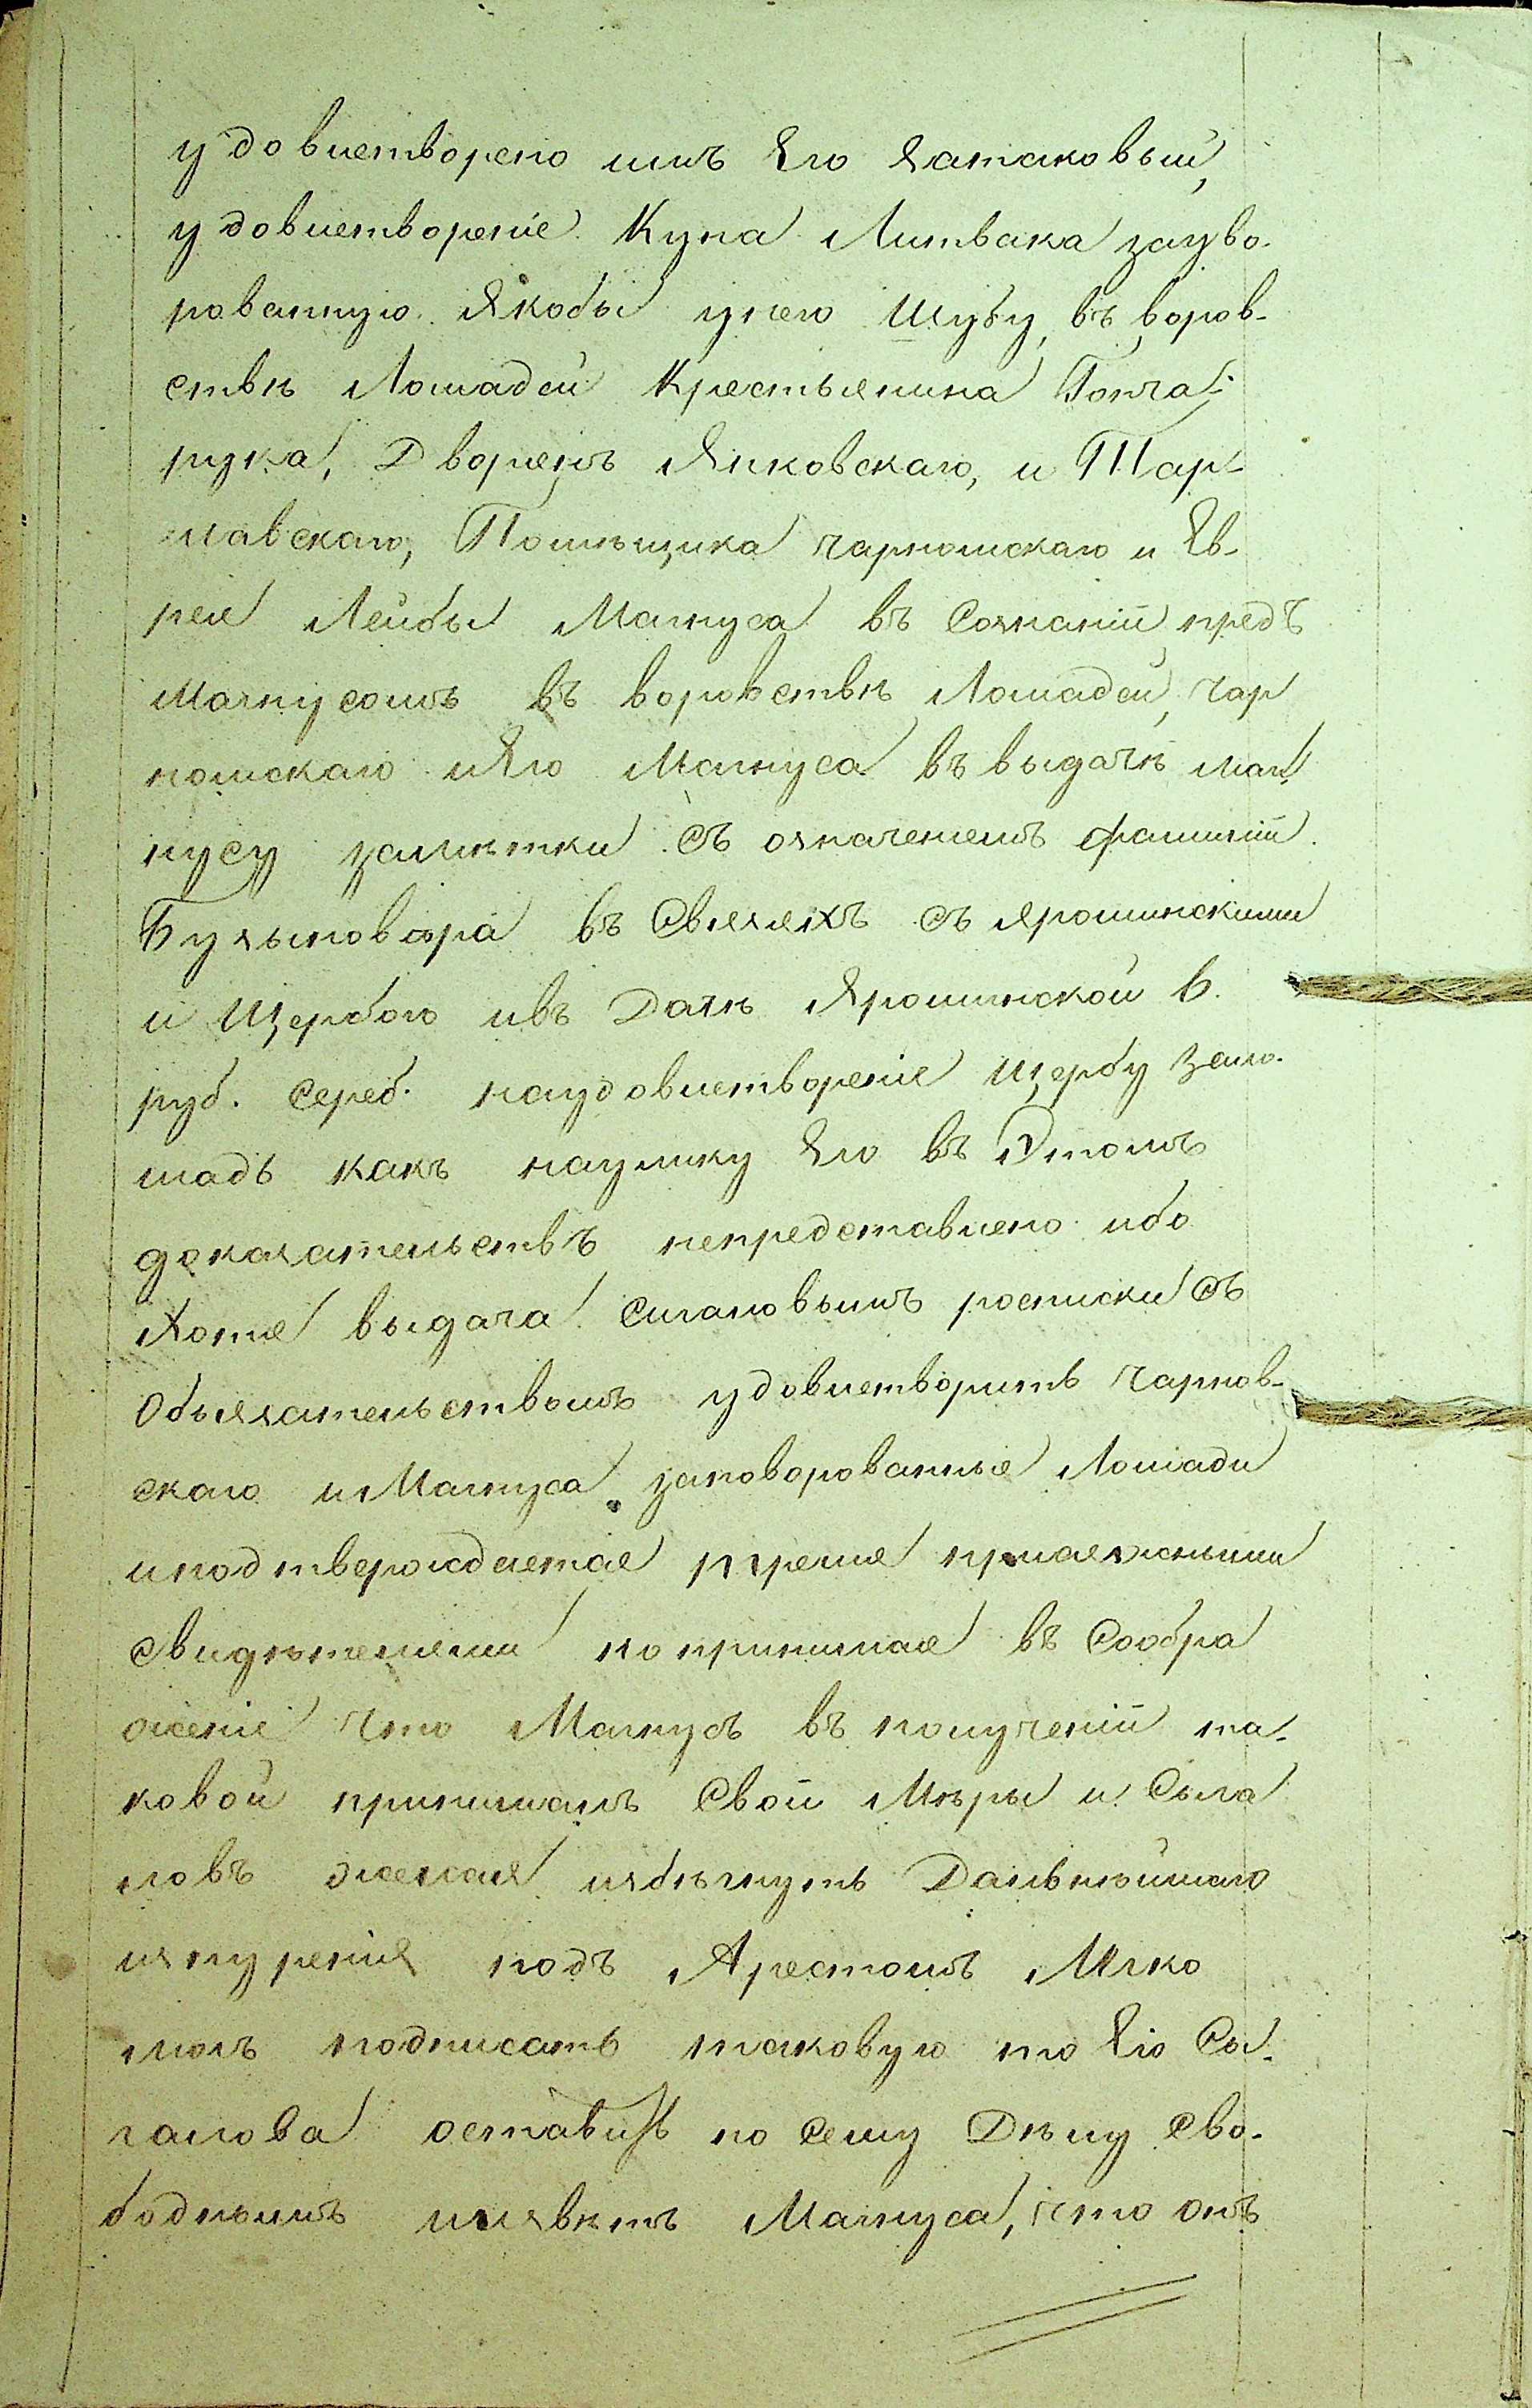 удовлетворено имъ Его Затаковый,
удовлетвореніе Купа Литвака зауво-
рованную Якобы унего Шубу, въ воров-
ствѣ Лошадей Крестьянина Гонча-
рука, Дворянъ Янковскаго, и Тар-
навскаго, Помѣщика Чарномскаго и Ев-
рея Лейбы Магнуса въ Сознаніи предъ
Магнусомъ въ воровствѣ Лошадей, Чар
номскаго иЯго Магнуса въ выдачѣ Маг
нусу замѣтки съ означеніемъ фамиліи
въ Связяхъ съ Ярошинскими
и Щербою ивъ Дачѣ Ярошинской 6.
руб. сереб. наудовлетвореніе Щербу зало-
шадь какъ наулику Его въ Этомъ
доказательствъ непредставлено ибо
Хотя выдача Сигаловымъ росписки съ
Обязательствомъ удовлетворить Чарнов-
скаго иМагнуса заповорованные Лошади
иподтверждается тремя присяжными
Свидѣтелями но принимая въ Сообра
женіе что Магнусъ въ полученіи та-
ковой принималъ Свои Мѣры и Сыга
ловъ желая избѣгнуть Дальнѣйшаго
изнуренія подъ Арестомъ Легко
могъ подписать таковую то Его Сы-
галова оставить по Сему Дѣлу Сво-
боднымъ Магнуса, что онъ